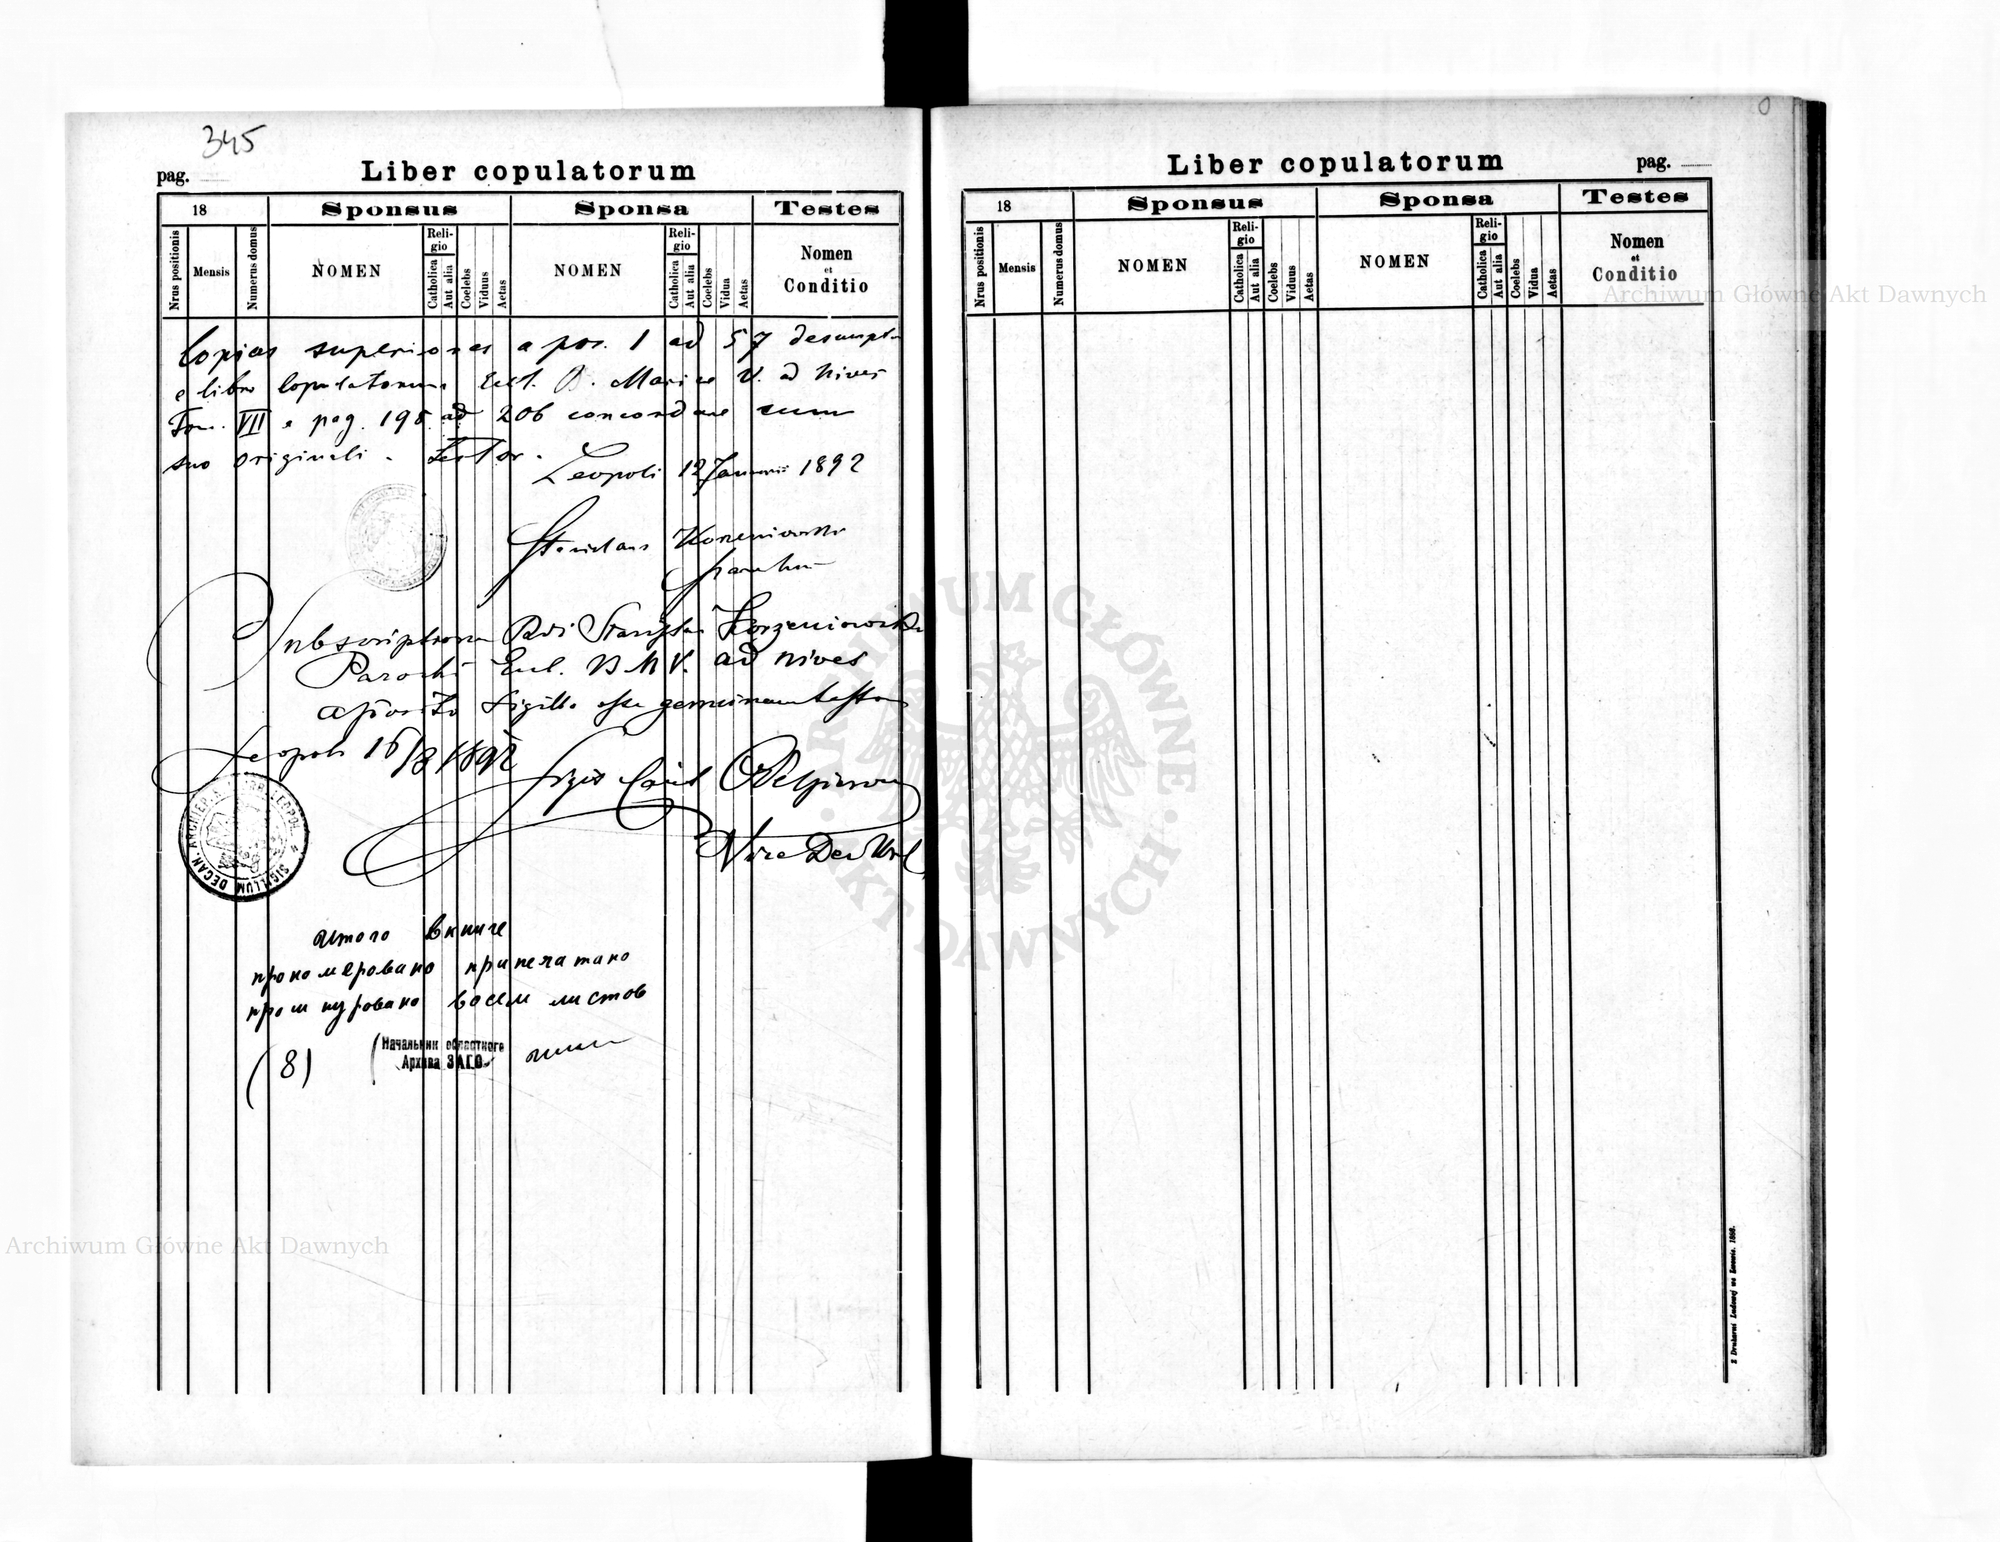 345
pag.
Liber copulatorum
18
Sponsus
Sponsa
Testes
Nrus positionis
Mensis
Numerus domus
NOMEN
Religio
Catholica
Aut alia
Coelebs
Viduus
Aetas
NOMEN
Religio
Catholica
Aut alia
Coelebs
Vidua
Aetas
Nomen
et
Conditio
Copias superiores a pos. 1 ad 57 desumpt
e libro Copulatorum Eccl. B. Mariae V. ad Nives
Tom. VII a pag. 198 ad 206 concordare cum
suo originali. Testor.
Leopoli 12 Januarii 1892
Stanislaus Korzeniowski
Parochus
Subscriptionem Rdi Stanislai Korzeniowski
Parochi Eccl. B M V. ad nives
aposito Sigillo esse genuinam testor
Leopoli 16/3 1892
Vice Dec
SIGILLUM DECAN. ARCHIEP.
Итого в книге
прономеровано припечатано
прошнуровано восем листов
(8)
Начальник областного
Архива ЗАГС
Liber copulatorum
pag.
0
18
Sponsus
Sponsa
Testes
Nrus positionis
Mensis
Numerus domus
NOMEN
Religio
Catholica
Aut alia
Coelebs
Viduus
Aetas
NOMEN
Religio
Catholica
Aut alia
Coelebs
Vidua
Aetas
Nomen
et
Conditio
Z Drukarni Ludowej we Lwowie. 1886.
Archiwum Główne Akt Dawnych
ARCHIWUM GŁÓWNE
AKT DAWNYCH
Archiwum Główne Akt Dawnych